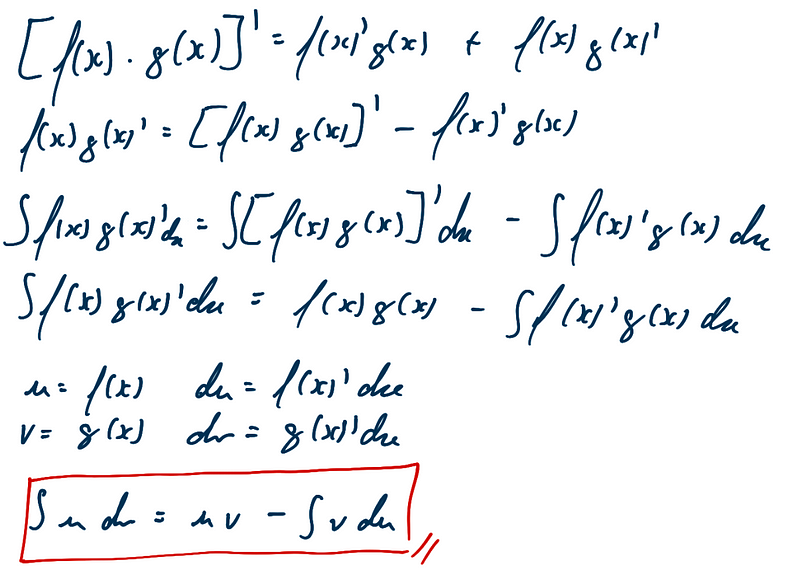 [f(x) · g(x)]' = f(x)' g(x) + f(x) g(x)'
f(x) g(x)' = [f(x) g(x)]' - f(x)' g(x)
∫ f(x) g(x)' dx = ∫ [f(x) g(x)]' dx - ∫ f(x)' g(x) dx
∫ f(x) g(x)' dx = f(x) g(x) - ∫ f(x)' g(x) dx
u = f(x) du = f(x)' dx
v = g(x) dv = g(x)' dx
∫ u dv = u v - ∫ v du